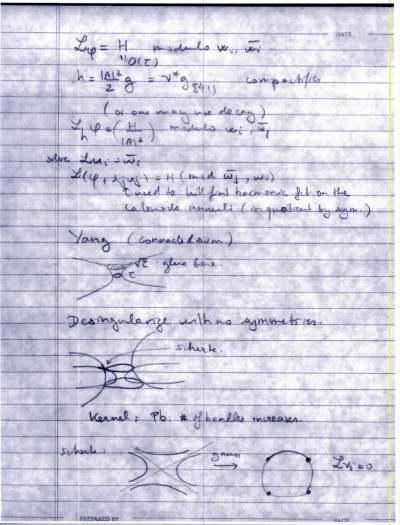 Lφ = H modulo wᵢ, w̄ᵢ
" O(τ)
h = |A|²/2 g = ν* g S²(1) compactifies
(or one may use decay)
L_h φ = (H/|A|²) modulo wᵢ, w̄ⱼ
solve Luᵢ = w̄ᵢ
L(φ + λⱼvⱼ) = H (mod w̄ⱼ, wᵢ)
used to kill first harmonic on the
catenoid annuli (in quotient by sym.)
Yang (connected sum)
√τ glue here
τ
Desingularize with no symmetries.
scherk.
Kernel: Pb: # of handles increases.
scherk: gauss Lvᵢ=0
PREPARED BY
DATE